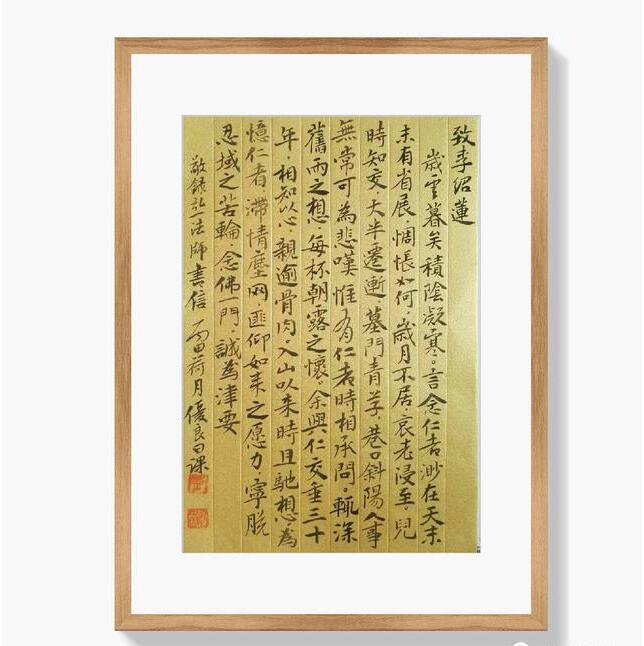 致李紹蓮
歲云暮矣積陰凝寒。言念仁者渺在天末
未有省展，惆悵如何，歲月不居，衰老浸至，兒
時知交，大半遷逝，墓門青草，巷口斜陽，人事
無常可為悲嘆惟有仁者時相承問。輒深
舊雨之想，每抔朝露之懷，余與仁交垂三十
年，相知以心，親逾骨肉，入山以來時且馳想，為
憶仁者滯情塵网匪仰如來之愿力，寧脫
忍域之苦輪，念佛一門，誠為津要
敬錄弘一法師書信 丙申荷月優良日課